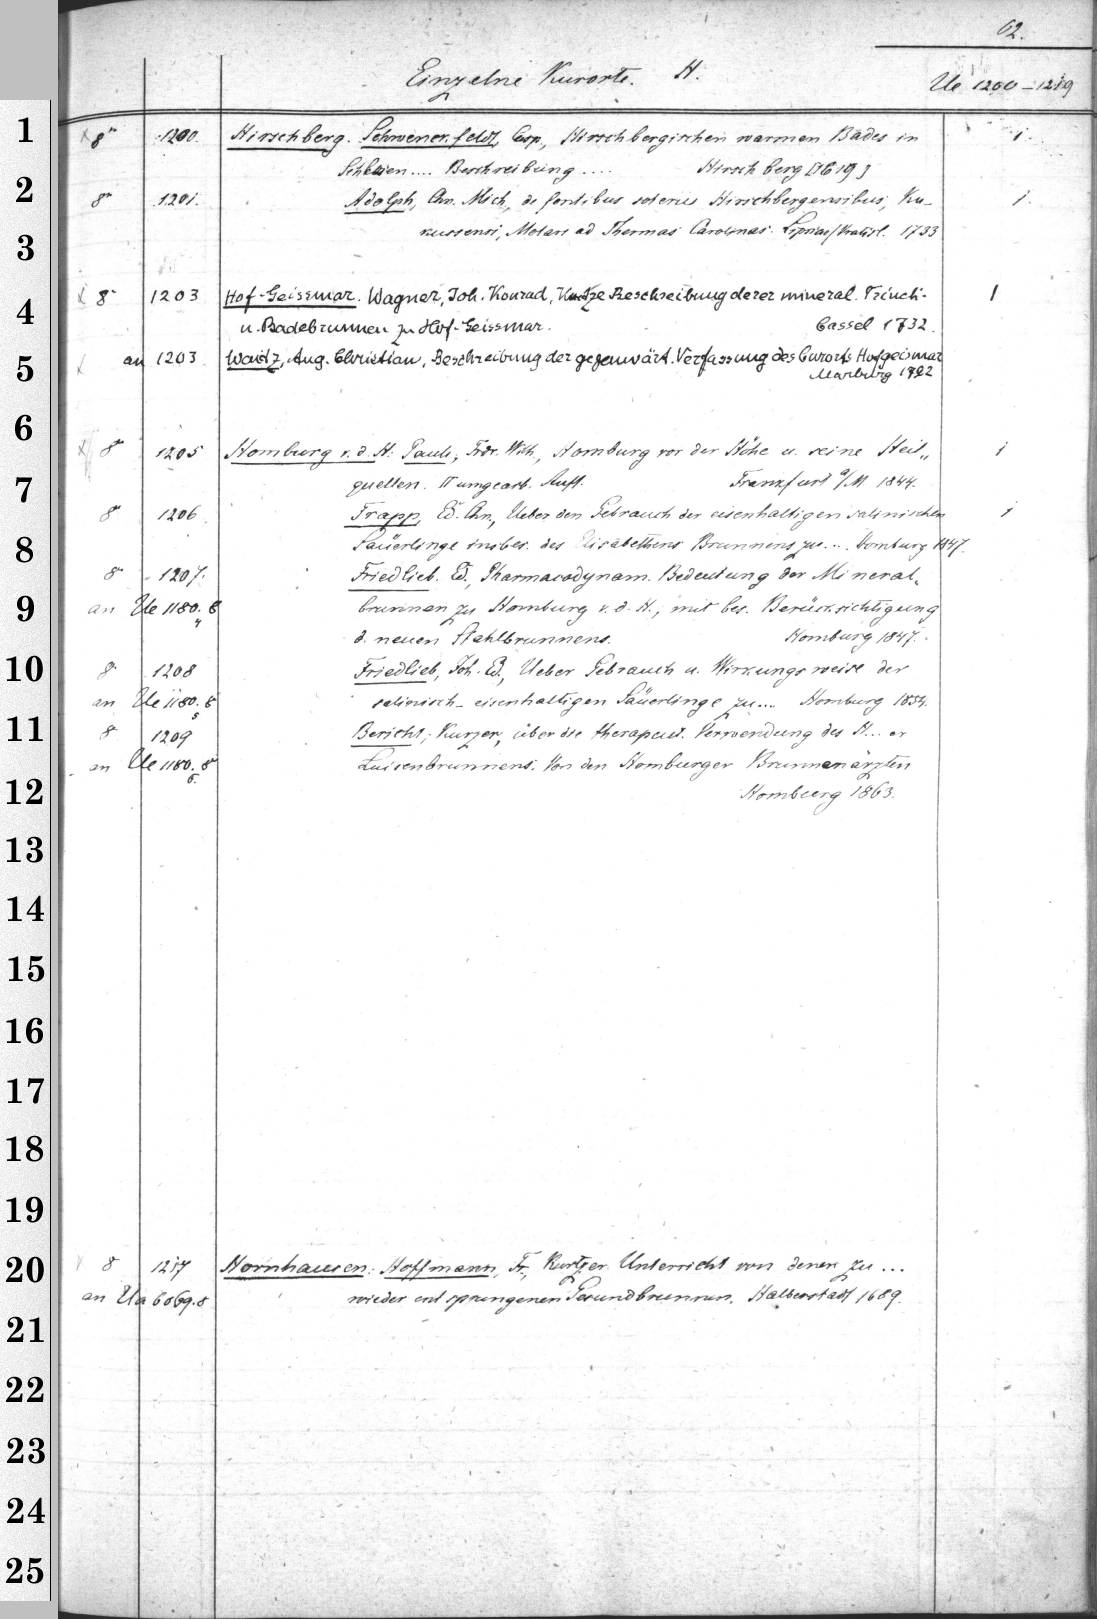 62.
Einzelne Kurorte. H.
Ue 1200-1219
1 × 8° 1200. Hirschberg. Schwenckfeldt, Casp., Hirschbergischen warmen Bades in 1.
Schlesien.... Beschreibung .... Hirschberg [1619]
2 8° 1201. Adolph, Chn. Mich., de fontibus soteriis Hirschbergensibus, Ku- 1.
kussensi, Molari ad Thermas Carolinas. Lipsiae/Vratisl. 1733
3
4 × 8° 1203 Hof-Geissmar. Wagner, Joh. Konrad, Kurtze Beschreibung derer mineral. Trinck- 1
u. Badebrunnen zu Hof-Geissmar. Cassel 1732.
5 × an 1203. Waitz, Aug. Christian, Beschreibung der gegenwärt. Verfassung des Curorts Hofgeismar
Marburg 1792
6 × 8° 1205 Homburg v. d. H. Pauli, Frdr. Wilh., Homburg vor der Höhe u. seine Heil„ 1
7 quellen. II umgearb. Aufl. Frankfurt a/M 1844.
8° 1206. Trapp, Ed. Chn., Ueber den Gebrauch der eisenhaltigen salinischen 1
8 Säuerlinge insbes. des Elisabethens Brunnens zu.... Homburg 1847.
8° 1207. Friedlieb. Ed., Pharmacodynam. Bedeutung der Mineral„
9 an Ue 1180. 8 brunnen zu Homburg v. d. H., mit bes. Berücksichtigung
4 d. neuen Stahlbrunnens. Homburg 1847.
10 8° 1208 Friedlieb, Joh. Ed., Ueber Gebrauch u. Wirkungsweise der
an Ue 1180. 8 salinisch-eisenhaltigen Säuerlinge zu... Homburg 1854.
5
11 8 1209 Bericht, Kurzer, über die therapeut. Verwendung des H... er
an Ue 1180. 8° Luisenbrunnens. Von den Homburger Brunnenärzten
6.
12 Homburg 1863.
13
14
15
16
17
18
19
20 8 1217 Hornhausen. Hoffmann, Fr., Kurtzer Unterricht von denen zu ...
an Ua 6069. 8 wieder entsprungenen Gesundbrunnen. Halberstadt 1689.
21
22
23
24
25